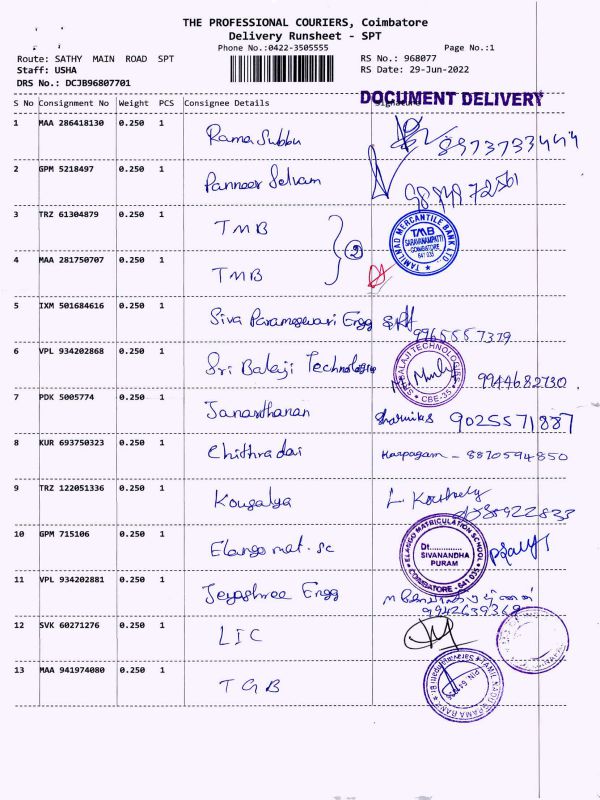 THE PROFESSIONAL COURIERS, Coimbatore
Delivery Runsheet - SPT
Phone No.:0422-3505555
Page No.:1
Route: SATHY MAIN ROAD SPT
RS No.: 968077
Staff: USHA
RS Date: 29-Jun-2022
DRS No.: DCJB96807701
S No Consignment No Weight PCS Consignee Details Signature
DOCUMENT DELIVERY
1 MAA 286418130 0.250 1 Rama Subbu
2 GPM 5218497 0.250 1 Panneer Selvam
3 TRZ 61304879 0.250 1 TMB
2
TAMILNAD MERCANTILE BANK LTD
TMB
SARAVANAMPATTI
COIMBATORE
641 035
4 MAA 281750707 0.250 1 TMB
5 IXM 501684616 0.250 1 Siva Parameswari Engg
9965557379
6 VPL 934202868 0.250 1 Sri Balaji Technologie 9944682730
SRI BALAJI TECHNOLOGIES
CBE-35
7 PDK 5005774 0.250 1 Jananthanan 9025571887
8 KUR 693750323 0.250 1 Chithradai Karpagam - 8870594850
9 TRZ 122051336 0.250 1 Kousalya
10 GPM 715106 0.250 1 Elango mat. sc
ELANGO MATRICULATION SCHOOL
Dt.............
SIVANANDHA
PURAM
COIMBATORE - 641 035
11 VPL 934202881 0.250 1 Jeyashree Engg
9942639368
12 SVK 60271276 0.250 1 LIC
13 MAA 941974080 0.250 1 TGB